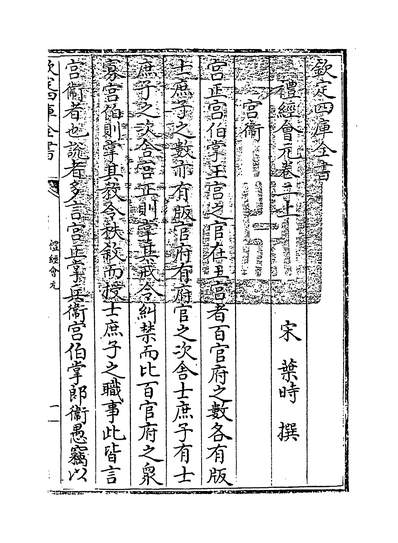 欽定四庫全書
禮經會元卷二上
宋 葉時 撰
宮衛
宮正宮伯掌王宮之官在王宮者百官府之數各有版
士庶子之數亦有版官府有府官之次舍士庶子有士
庶子之次舍宮正則掌其戒令糾禁而比百官府之衆
寡宮伯則掌其敎令秩叙而授士庶子之職事此皆言
宮衛者也説者多言宮正掌兵衛宮伯掌郎衛愚竊以
欽定四庫全書
禮經會元
一